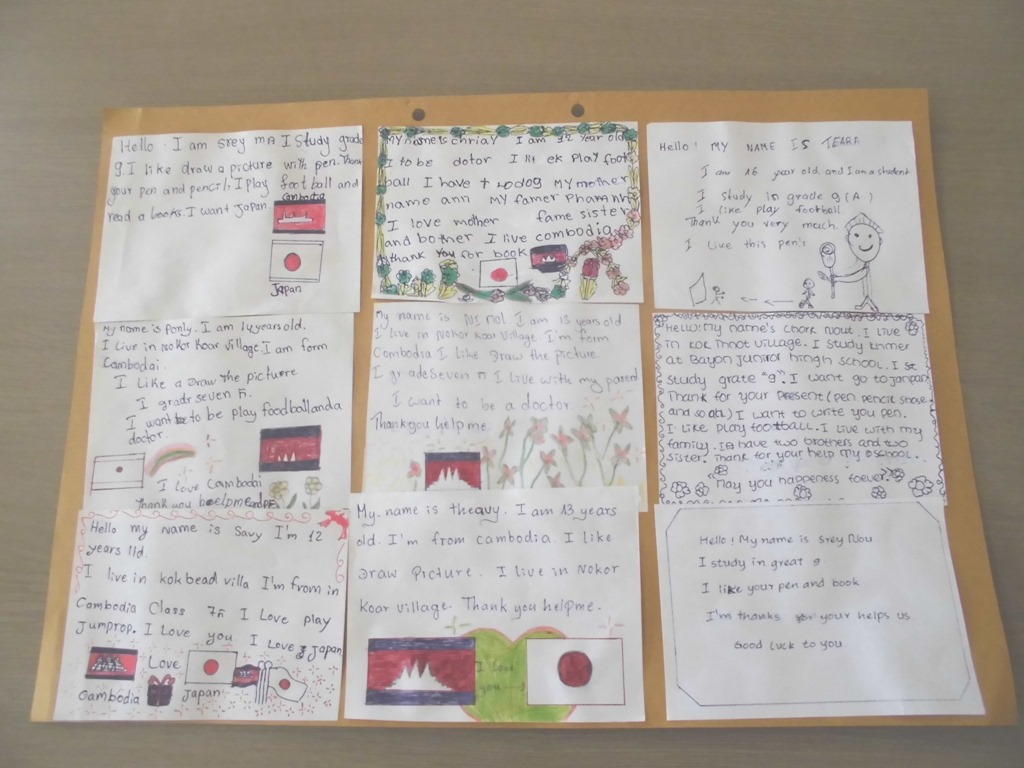 Hello. I am srey ma I study grade
9. I like draw a picture with pen. Thank
your pen and pencil. I play football and
read a books. I want Japan.
Cambodia
Japan
My name is chriay I am 12 year old
I to be dotor I lik ek play foot
ball I have dog My mother
name ann My famer
I love mother fame sister
and bother I live combodia
thank You for book
Hello! MY NAME IS
I am 16 year old. and I am a student
I study in grade 9 (A)
I like play football
Thank you very much.
I like this pen's
My name is Ponly. I am 14 years old.
I live in Nokor Koar village. I am form
Cambodai.
I Like a Draw The picture
I gradr seven ក.
I want to be play foodball and a
doctor.
I Love Cambodai
Thank you
My name is I am 13 years old
I live in Nokor Koar village. I'm form
Cambodia I Like Draw the picture.
I grade seven ក I Live with my parent
I want to be a doctor.
Thank you help me.
Hello! My name's chork Nout. I Live
in kok thnot village. I study khmer
at Bayon junior hingh school. I st
study grate "9". I want go to janpan
Thank for your present (pen pencil
and so on) I want to write you pen.
I Like play football. I Live with my
family. I have two brothers and two
sister. Thank for your help my school.
"May you happeness foever."
Hello my name is Savy I'm 12
years lld.
I live in kok bead villa I'm from in
Cambodia Class 7ក I Love play
Jumprop. I Love you I Love Japan
Love
Cambodia
Japan
My name is theavy. I am 13 years
old. I'm from cambodia. I like
Draw Picture. I live in Nokor
Koar village. Thank you help me.
I love
you
Hello! My name is Srey Nou
I study in great 9
I like your pen and book
I'm thanks for your helps us
Good luck to you